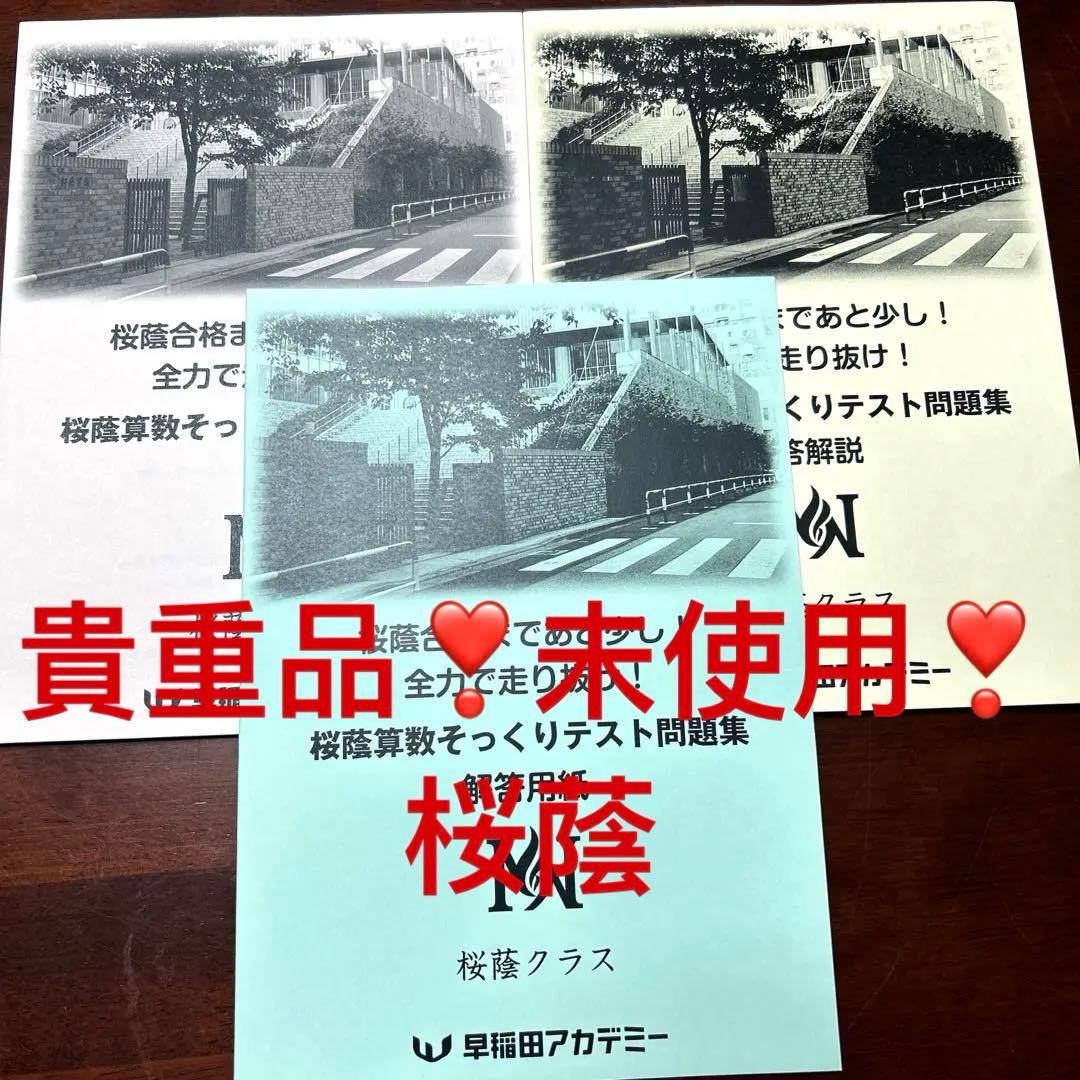 桜蔭合格ま
全力で
桜蔭算数そっ
早稲
まであと少し！
走り抜け！
くりテスト問題集
答解説
クラス
田アカデミー
貴重品❣未使用❣
桜蔭
桜蔭合 まであと少し！
全力で走り抜け！
桜蔭算数そっくりテスト問題集
解答用紙
桜蔭クラス
早稲田アカデミー